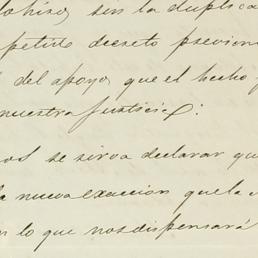 lohizo, sin la duplica
petido decreto previni
del apoyo, que el hecho
nuestra justicia:
se sirva declarar qu
la nueva exaccion que la
n lo que nos dispensará